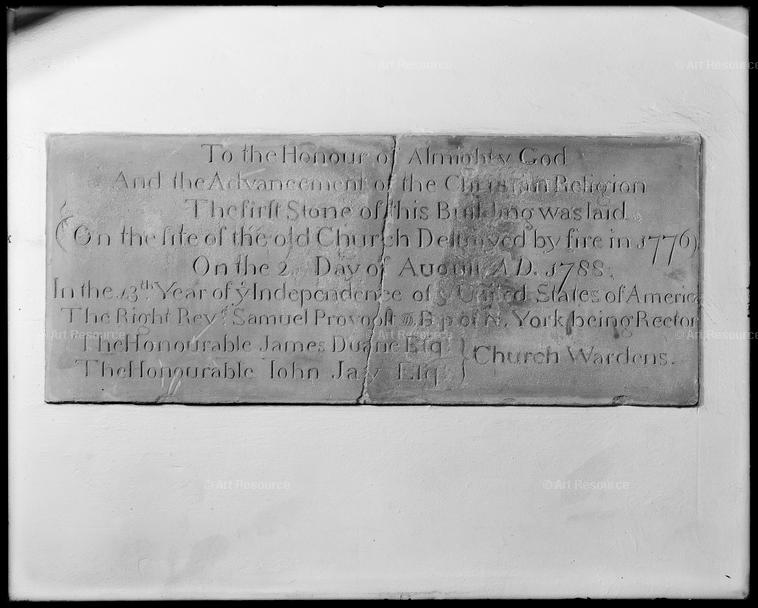 To the Honour of Almighty God
And the Advancement of the Christian Religion
The firſt Stone of this Building was laid
(On the ſite of the old Church Deſtroyed by fire in 1776)
On the 2 Day of Auguſt A.D. 1788.
In the 13th Year of ẏ Independence of ẏ United States of America
The Right Revd Samuel Provooſt D.D. Bp of N. York, being Rector
The Honourable James Duane Eſqr } Church Wardens.
The Honourable Iohn Jay Eſqr
© Art Resource
© Art Resource
© Art Resource
© Art Resource
© Art Resource
© Art Resource
© Art Resource
© Art Resource